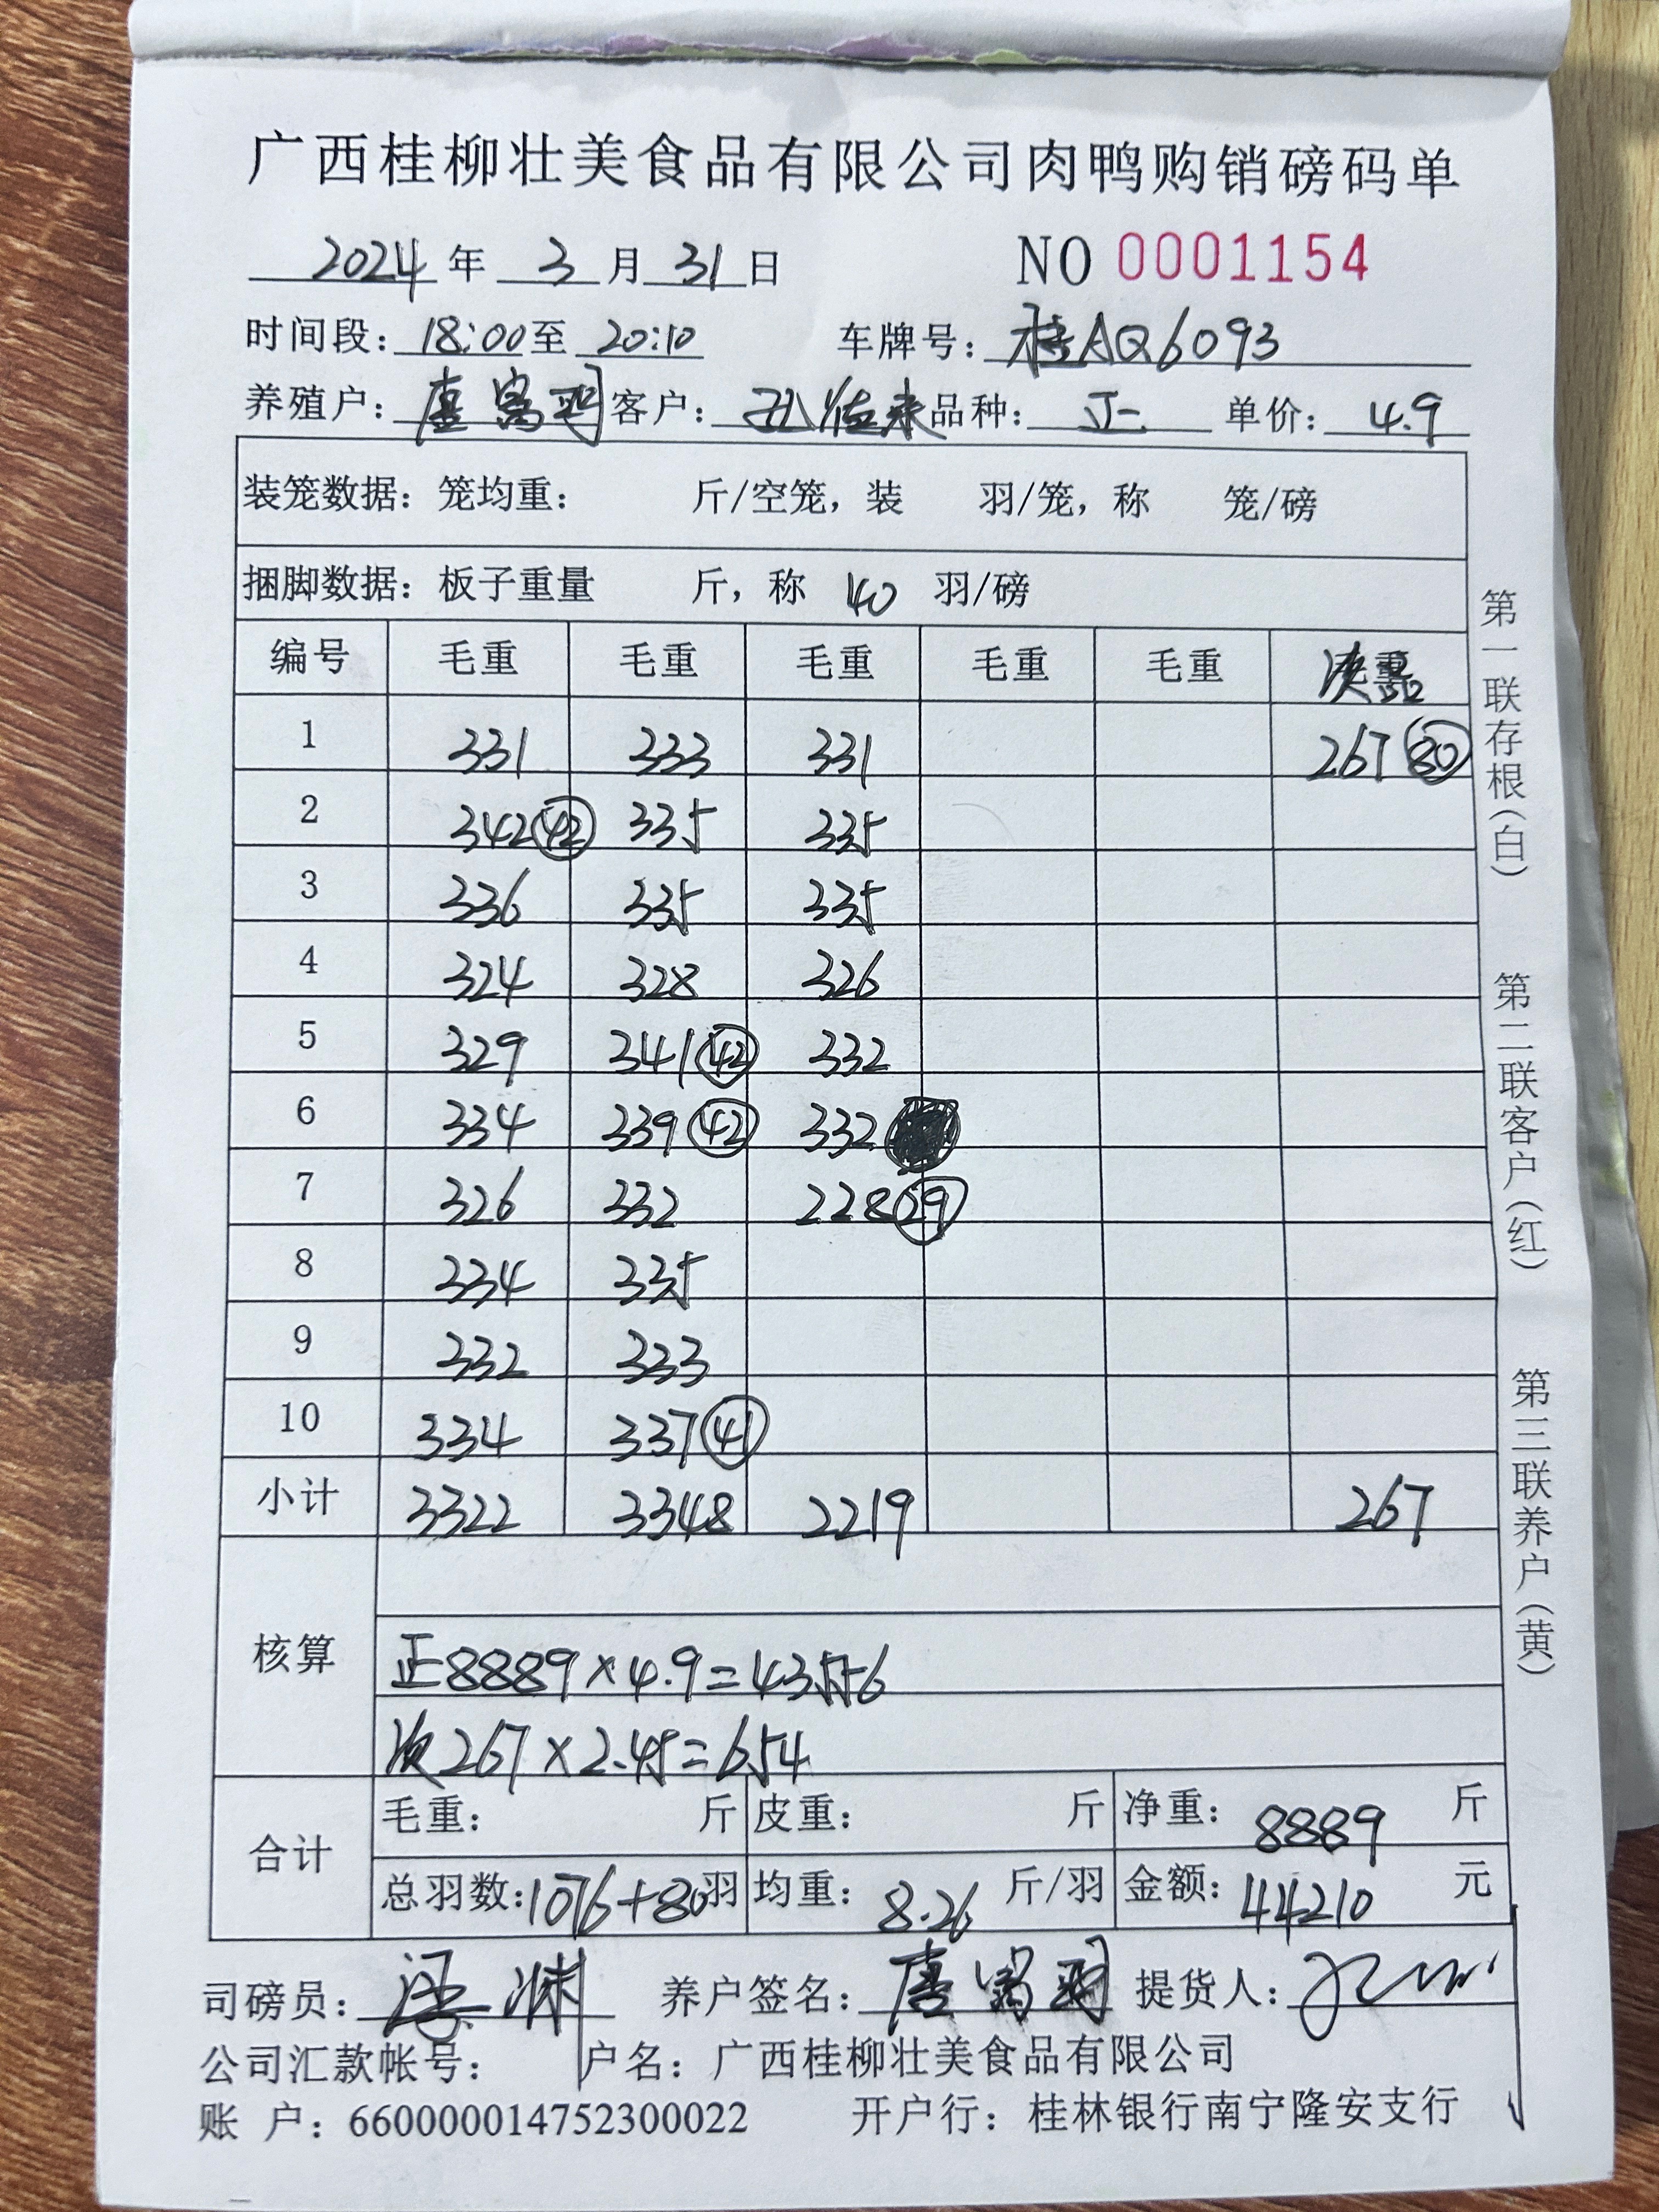 广西桂柳壮美食品有限公司肉鸭购销磅码单
2024 年 3 月 31 日 NO 0001154
时间段: 18:00 至 20:10 车牌号: 桂AQ6093
养殖户: 唐 客户: 孔 品种: 正 单价: 4.9
装笼数据: 笼均重: 斤/空笼, 装 羽/笼, 称 笼/磅
捆脚数据: 板子重量 斤, 称 40 羽/磅
编号 毛重 毛重 毛重 毛重 毛重
1 331 333 331 267 80
2 342 42 335 335
3 336 335 335
4 324 328 326
5 329 341 42 332
6 334 339 42 332
7 326 332 228 29
8 334 335
9 332 333
10 334 337 41
小计 3322 3348 2219 267
核算
正8889×4.9=43556
次267×2.45=654
合计
毛重: 斤 皮重: 斤 净重: 8889 斤
总羽数: 1076+80 羽 均重: 8.26 斤/羽 金额: 44210 元
司磅员: 养户签名: 唐 提货人:
公司汇款帐号: 户名: 广西桂柳壮美食品有限公司
账 户: 660000014752300022 开户行: 桂林银行南宁隆安支行
第一联存根(白) 第二联客户(红) 第三联养户(黄)